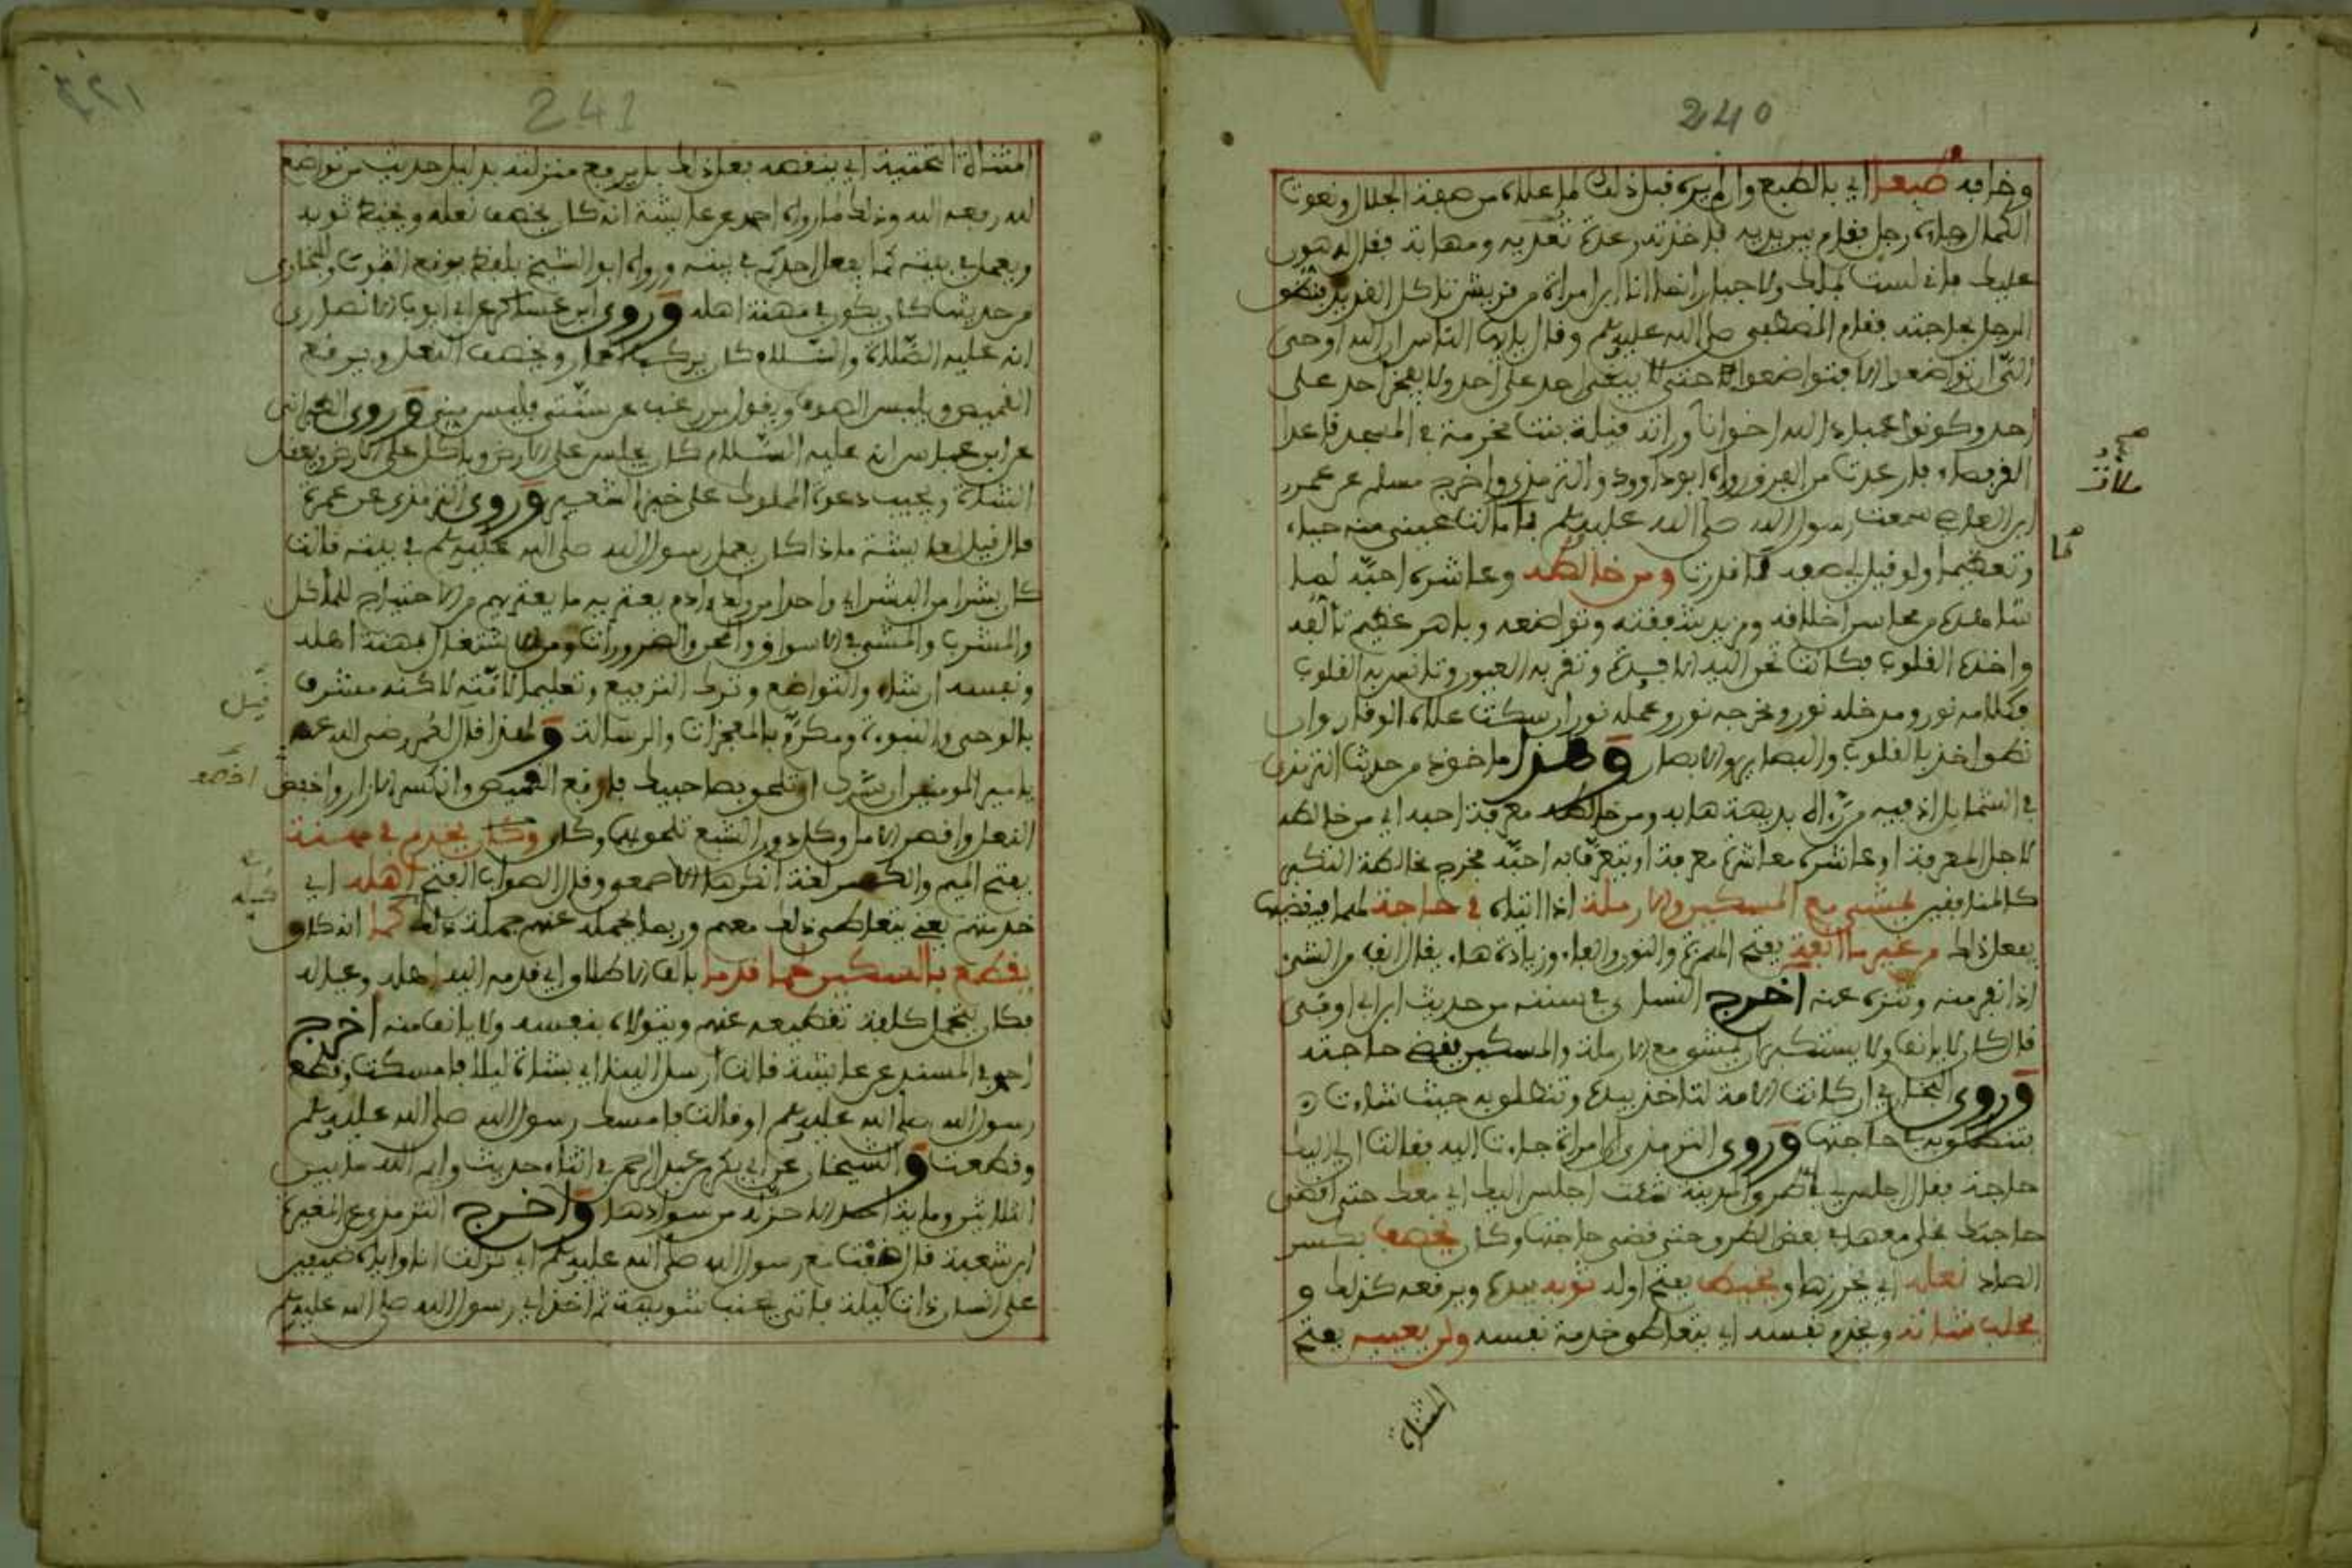 240
وخرافه طبعا اي بالطبع وان لم يره قبل ذلك لما علاه من صفة الجلال ونعوت
الكمال وجاءه رجل فقام بين يديه فاخذته رعدة تعتريه ومهابة فقال له هون
عليك فاني لست بملك ولا جبار انما انا ابن امراة من قريش تاكل القديد فنطق
الرجل بحاجته فقام المصطفى صلى الله عليه وسلم وقال يا ايها الناس ان الله اوحى
الي ان تواضعوا الا فتواضعوا حتى لا يبغي احد على احد ولا يفخر احد على
احد وكونوا عباد الله اخوانا وراته قيلة بنت مخرمة في المسجد قاعدا
القرفصاء فارعدت من الفرق رواه ابو داوود والترمذي واخرج مسلم عن عمرو
ابن العاصي صحبت رسول الله صلى الله عليه وسلم ما ملات عيني منه حياء
وتعظيما ولو قيل لي صفه لما قدرت ومن خالطه وعاشره احبه لما
شاهده من محاسن اخلاقه ومزيد شفقته وتواضعه وباهر عظيم تالفه
واخذه القلوب فكانت تحن اليه الافئدة وتقر به العيون وتانس به القلوب
فكلامه نور ومدخله نور ومخرجه نور وعمله نور ان سكت علاه الوقار وان
نطق اخذ بالقلوب والبصاير والابصار وهذا ماخوذ من حديث الترمذي
في الشمايل اذ فيه من رءاه بديهة هابه ومن خالطه معرفة احبه اي من خالطه
لاجل المعرفة او عاشره معاشرة معرفة او يتعرف به احبه مخرج مخالطة التكبر
كالمنافقين يمشي مع المسكين والارملة اذا اتياه في حاجة لهما فيقضيها
يفعل ذلك من غير ما انفة بفتح الهمزة والنون والفاء وزيادة هاء يقال انف من الشيء
اذا نفر منه وتنزه عنه اخرج النساءي في سننه من حديث ابن ابي اوفى
قال كان لا يانف ولا يستكبر ان يمشي مع الارملة والمسكين يقضي حاجته
وروى البخاري ان كانت الامة لتاخذ بيده وتنطلق به حيث شاءت
فتنطلق به في حاجتها وروى الترمذي ان امراة جاءت اليه فقالت ان لي اليك
حاجة فقال اجلسي في اي طرق المدينة شئت اجلس اليك اي معك حتى اقضي
حاجتك فخلى معها في بعض الطرق حتى قضى حاجتها وكان يخصف بكسر
الصاد نعله اي يخرزها ويخيط بفتح اوله ثوبه بيده ويرقعه كذلك و
يحلب شاته ويخدم نفسه اي يتعاطى خدمة نفسه ولن يعيبه بفتح
المثناة
241
المثناة التحتية اي ينقصه بفعل ذلك بل يرفع منزلته بدليل حديث من تواضع
لله رفعه الله وذلك ما رواه احمد عن عائشة انه كان يخصف نعله ويخيط ثوبه
ويعمل في بيته كما يعمل احدكم في بيته ورواه ابو الشيخ بلفظ يرقع الثوب وللبخاري
من حديثها كان يكون في مهنة اهله وروى ابن عساكر عن ابي ايوب الانصاري
انه عليه الصلاة والسلام كان يركب الحمار ويخصف النعل ويرقع
القميص ويلبس الصوف ويقول من رغب عن سنتي فليس مني وروى الطبراني
عن ابن عباس انه عليه السلام كان يجلس على الارض وياكل على الارض ويعقل
الشاة ويجيب دعوة المملوك على خبز الشعير وروى الترمذي عن عمرة
قال قيل لعايشة ماذا كان يعمل رسول الله صلى الله عليه وسلم في بيته قالت
كان بشرا من البشر اي واحدا من ولد ءادم يعتريه ما يعتريهم من الاحتياج للماكل
والمشرب والمشي في الاسواق والمحن والضرورات ومن الاشتغال بمهنة اهله
ونفسه ارشادا والتواضع وترك الترفيع وتعليما لامته لاكنه مشرف
بالوحي والنبوءة ومكرم بالمعجزات والرسالة ولهذا قال لعمر رضي الله عنه
يا امير المومنين ان سرك ان تلحق بصاحبيك فارقع القميص وانكس الازار واخصف
النعل واقصر الامل وكل دون الشبع تلحق بهما وكان وكان يخدم في مهنة
بفتح الميم والكسر لغة انكرها الاصمعي وقال الصواب الفتح اهله اي
خدمتهم يعني يتعاطى ذلك معهم وربما تحمله عنهم جملة ذلك كما انه كان
يقطع بالسكين لحما قدما بالف الاطلاق اي قدمه اليه اهله وعياله
فكان يتحمل كلفة تقطيعه عنهم ويتولاه بنفسه ولا يانف منه اخرج
احمد في المسند عن عائشة قالت ارسل الينا اي بشاة ليلا فامسكت وقطع
رسول الله صلى الله عليه وسلم او قالت فامسك رسول الله صلى الله عليه وسلم
وقطعت والشيخان عن ابي بكر بن عبد الرحمن في اثناء حديث وايم الله ما من
الثلاثين وماية احد الا حز له من سوادها واخرج الترمذي عن المغيرة
ابن شعبة قال ضفت مع رسول الله صلى الله عليه وسلم اي نزلت انا واياه ضيفين
على انسان ذات ليلة فاتي بجنب شويهة ثم اخذ اي رسول الله صلى الله عليه وسلم